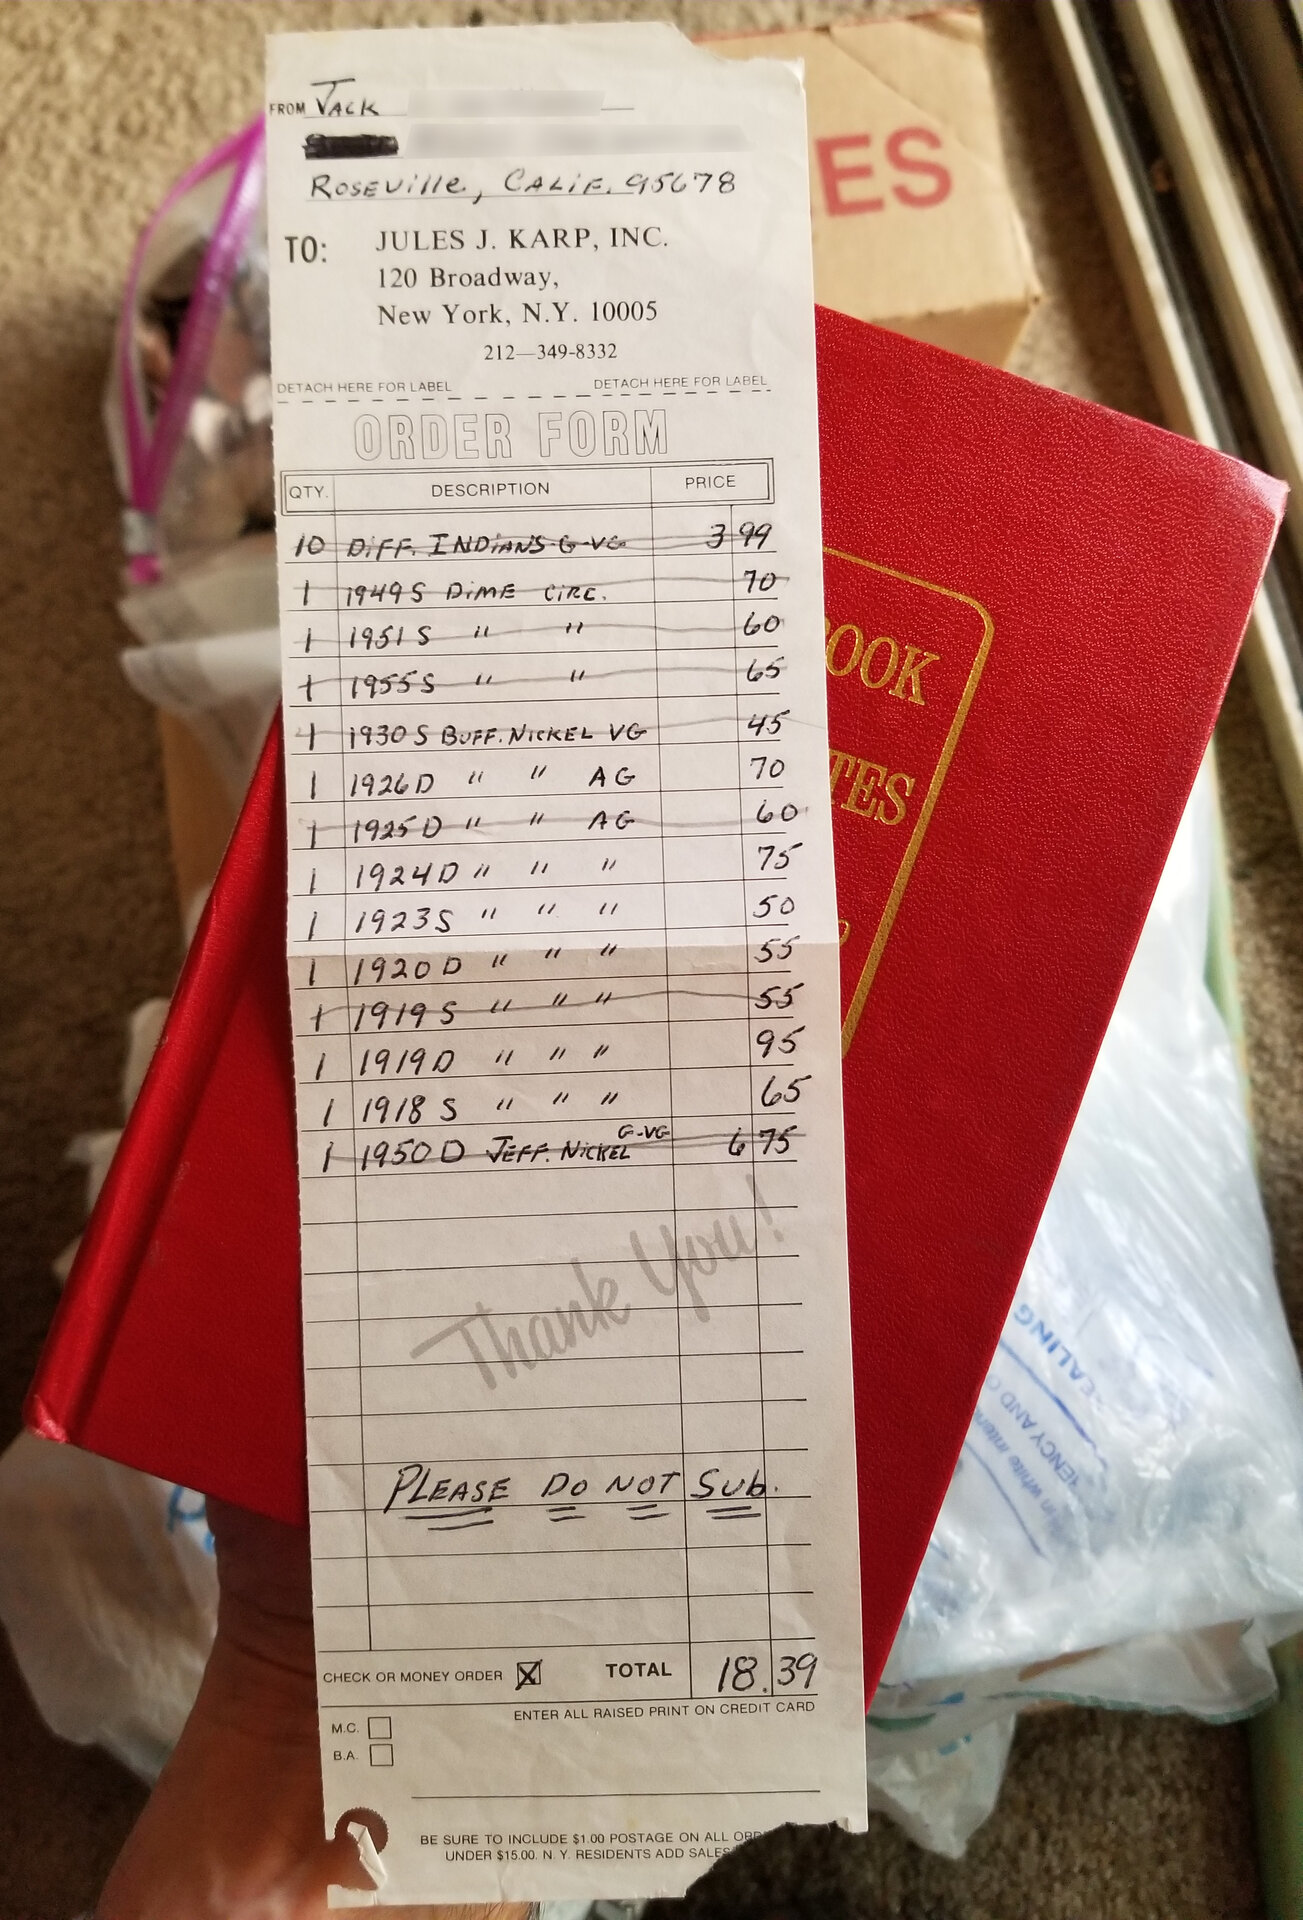 FROM JACK
ROSEVILLE, CALIF. 95678
TO: JULES J. KARP, INC.
120 Broadway,
New York, N.Y. 10005
212—349-8332
DETACH HERE FOR LABEL DETACH HERE FOR LABEL
ORDER FORM
QTY. DESCRIPTION PRICE
10 DIFF. INDIANS G-VG 3 99
1 1949 S DIME CIRC. 70
1 1951 S " " 60
1 1955 S " " 65
1 1930 S BUFF. NICKEL VG 45
1 1926 D " " AG 70
1 1925 D " " AG 60
1 1924 D " " " 75
1 1923 S " " " 50
1 1920 D " " " 55
1 1919 S " " " 55
1 1919 D " " " 95
1 1918 S " " " 65
1 1950 D JEFF. NICKEL G-VG 6 75
Thank You!
PLEASE DO NOT SUB.
CHECK OR MONEY ORDER X TOTAL 18.39
ENTER ALL RAISED PRINT ON CREDIT CARD
M.C.
B.A.
BE SURE TO INCLUDE $1.00 POSTAGE ON ALL
UNDER $15.00. N. Y. RESIDENTS ADD SALES
ES
OOK
TES
EALING
ENCY AND
white